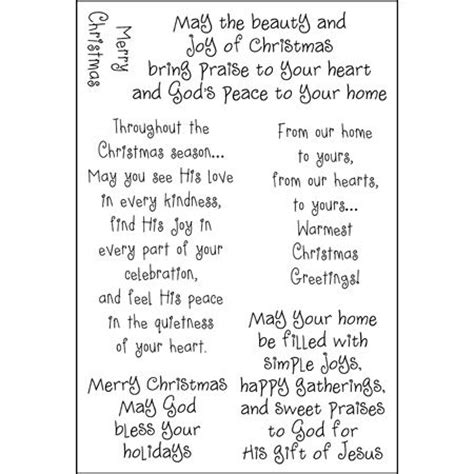 Merry
Christmas
May the beauty and
Joy of Christmas
bring Praise to Your heart
and God's Peace to Your home
Throughout the
Christmas season...
May you see His love
in every kindness,
find His Joy in
every part of your
celebration,
and feel His peace
in the quietness
of your heart.
From our home
to yours,
from our hearts,
to yours...
Warmest
Christmas
Greetings!
Merry Christmas
May God
bless Your
holidays
May Your home
be filled with
simple Joys,
happy gatherings,
and sweet Praises
to God for
His gift of Jesus